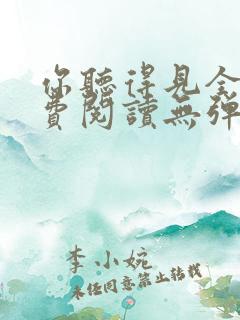 你聽得見全
費閱讀無彈
李小婉
未经同意禁止转载